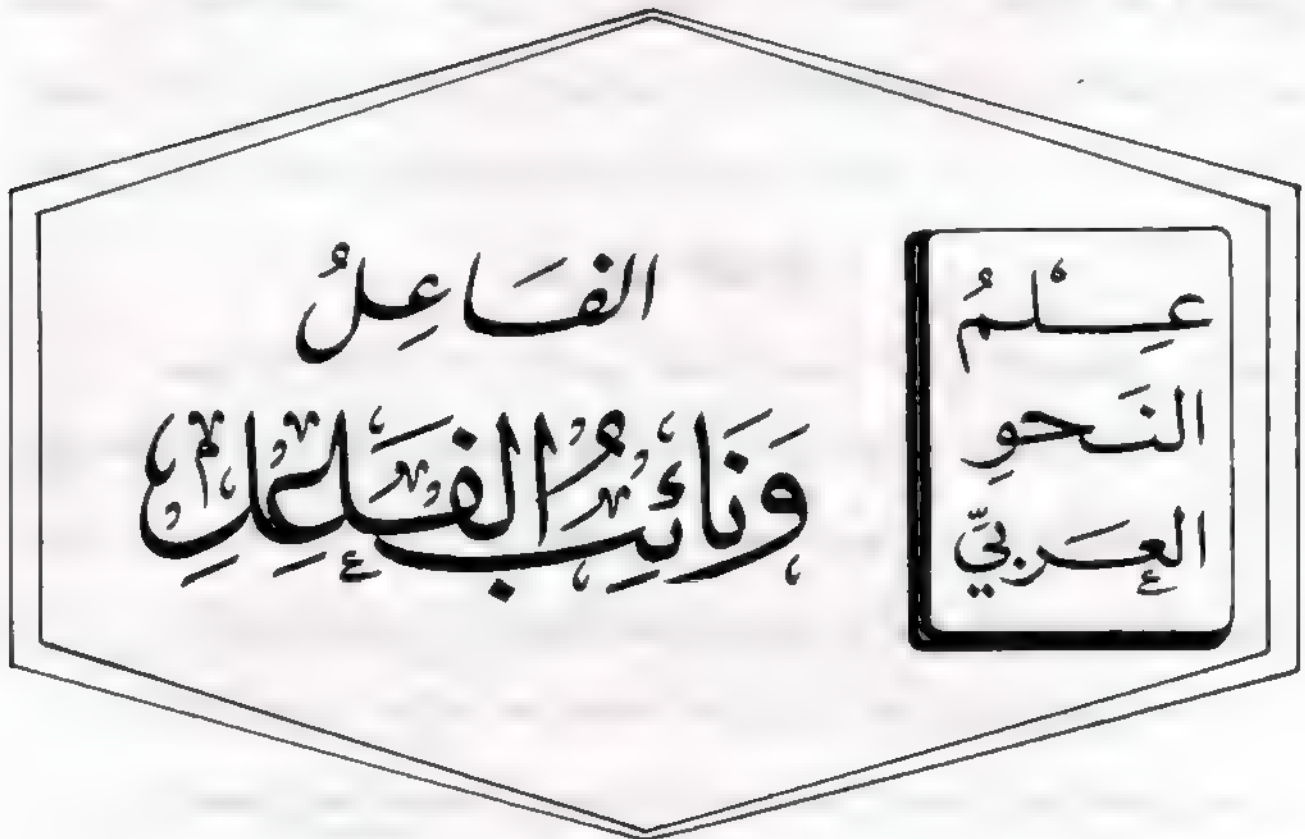 عِلْمُ
النَحوِ
العَرَبيّ
الفَاعِلُ
وَنَائِبُ الفَاعِلِ